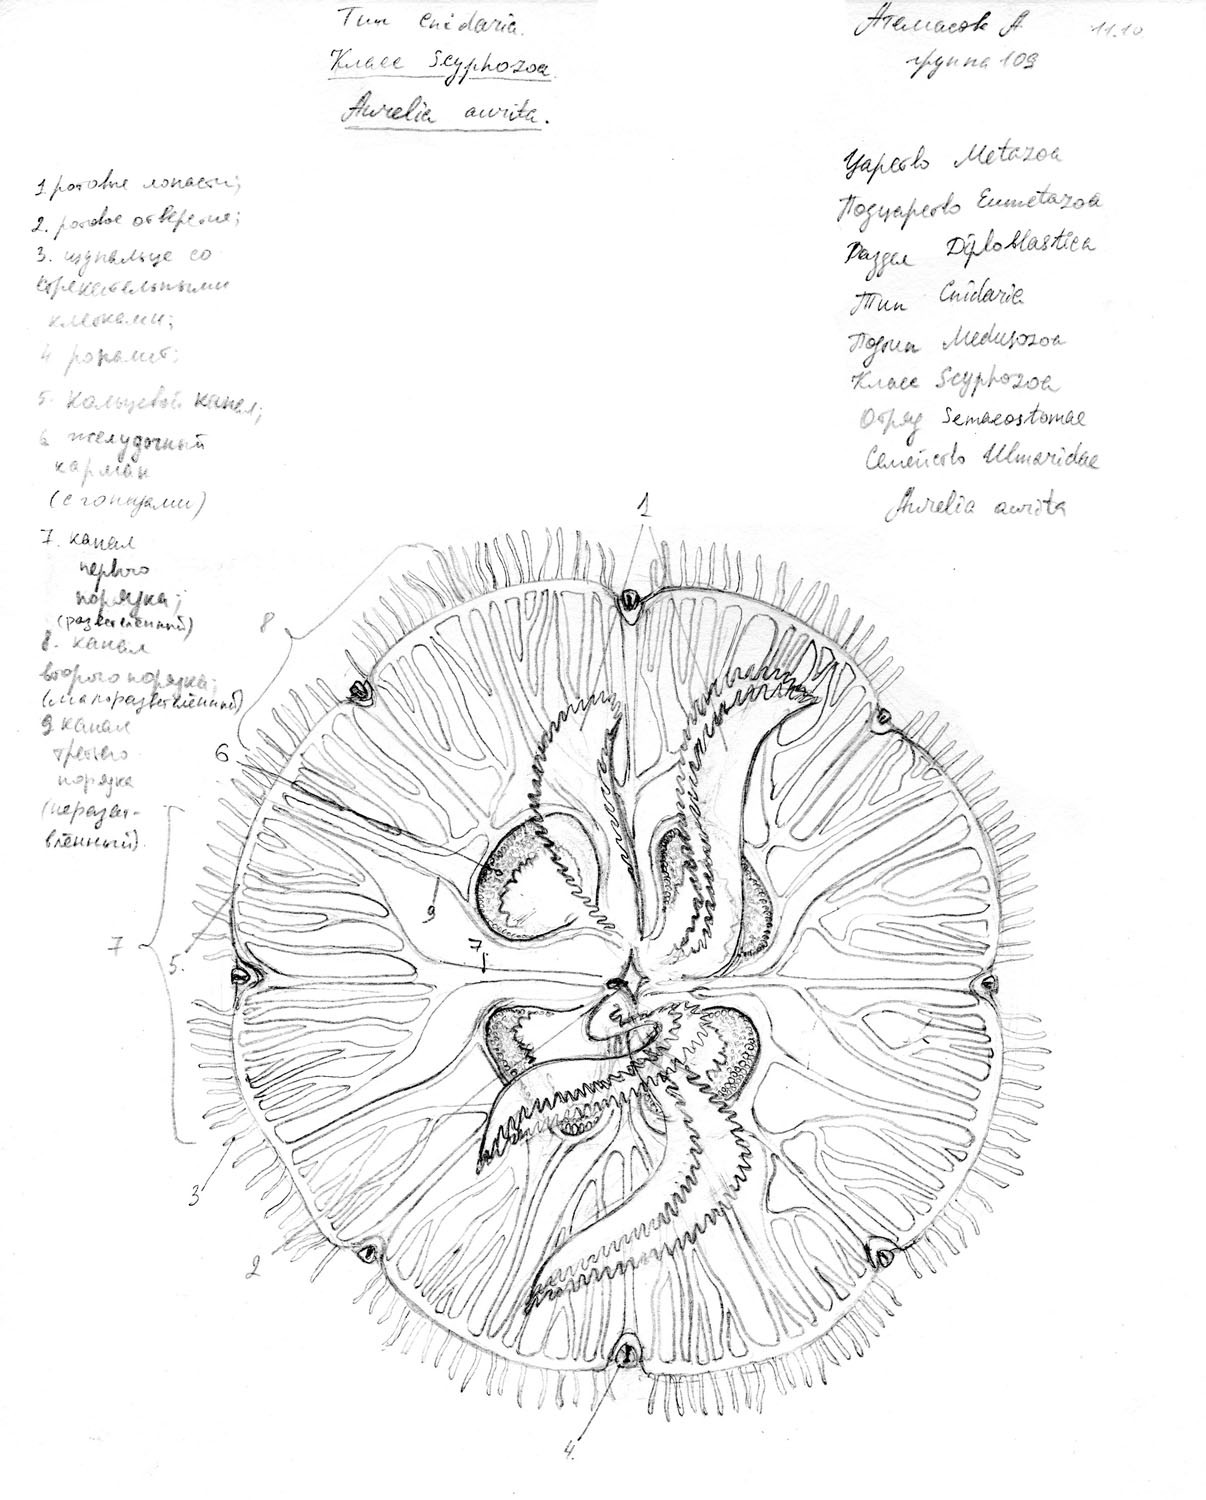 Тип Cnidaria.
Класс Scyphozoa
Aurelia aurita.
Атамасов А 11.10
группа 109
Царство Metazoa
Подцарство Eumetazoa
Раздел Diploblastica
Тип Cnidaria
Подтип Medusozoa
Класс Scyphozoa
Отряд Semaeostomae
Семейство Ulmaridae
Aurelia aurita
1 ротовые лопасти;
2. ротовое отверстие;
3. щупальце со
стрекательными
клетками;
4 ропалий;
5. кольцевой канал;
6 желудочный
карман
(с гонадами)
7. канал
первого
порядка;
(разветвлённый)
8. канал
второго порядка;
(малоразветвлённый)
9 канал
третьего
порядка
(неразвет-
влённый).
1
8
6
9
7
7
5.
3
2
4.